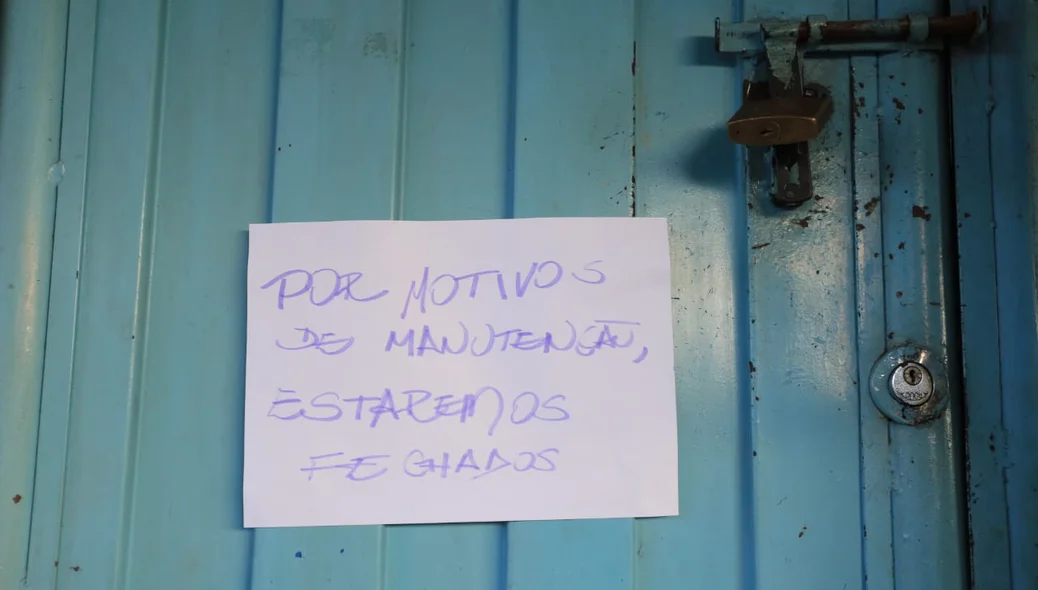 POR MOTIVOS
DE MANUTENÇÃO,
ESTAREMOS
FECHADOS